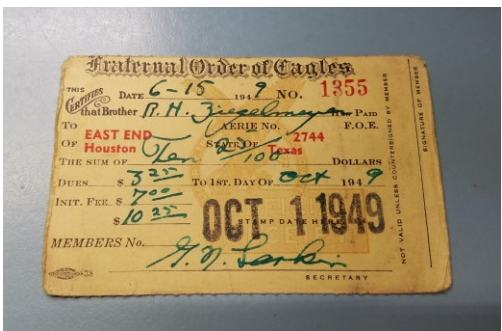 Fraternal Order of Eagles
THIS CERTIFIES DATE 6-15 1949 NO. 1355
that Brother R. H. Ziegelmeyer HAS PAID
TO EAST END AERIE NO. 2744 F.O.E.
OF Houston STATE OF Texas
THE SUM OF Ten 25/100 DOLLARS
DUES $ 3 25 TO 1ST. DAY OF Oct 1949
INIT. FEE $ 7 00
$ 10 25 STAMP DATE HERE
OCT 1 1949
MEMBERS No.
G. N. Larkin
SECRETARY
28
NOT VALID UNLESS COUNTERSIGNED BY MEMBER
SIGNATURE OF MEMBER